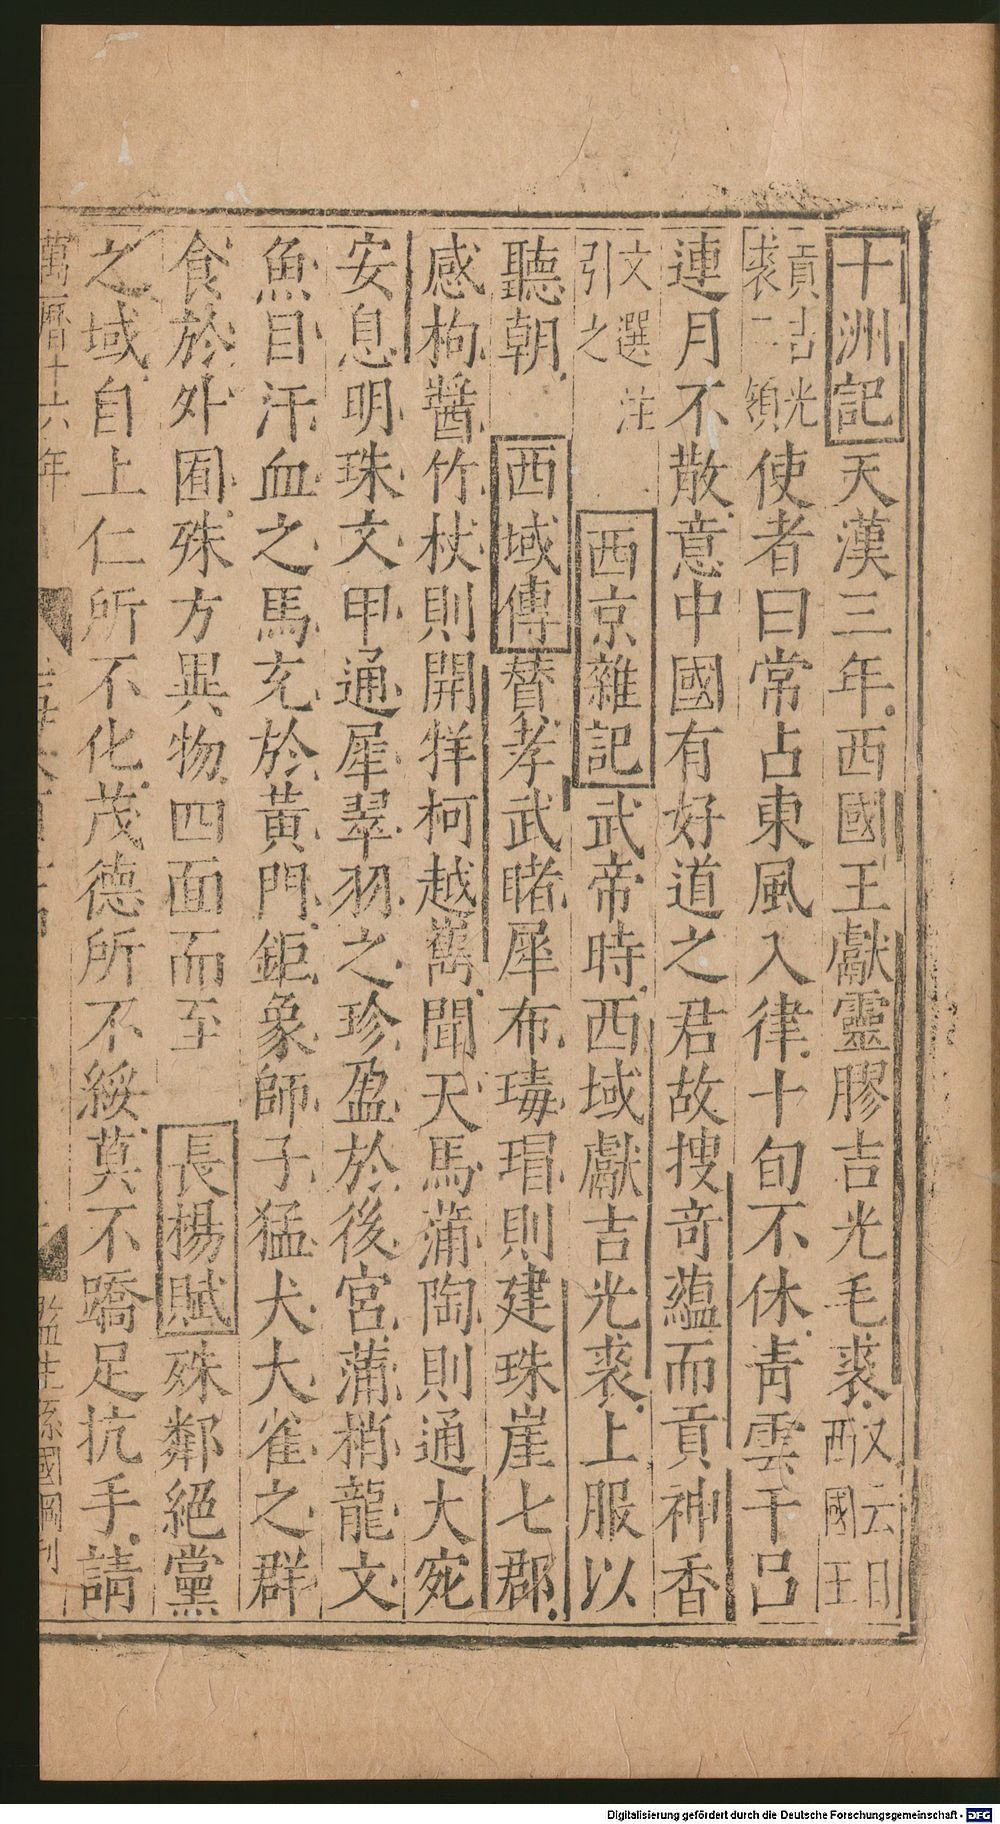 十洲記天漢三年西國王獻靈膠吉光毛裘又云日西國王
貢吉光裘二領使者曰常占東風入律十旬不休青雲干呂
連月不散意中國有好道之君故搜奇蘊而貢神香
文選注引之西京雜記武帝時西域獻吉光裘上服以
聽朝西域傳賛孝武睹犀布瑇瑁則建珠崖七郡
感枸醬竹杖則開牂柯越嶲聞天馬蒲陶則通大宛
安息明珠文甲通犀翠羽之珍盈於後宮蒲梢龍文
魚目汗血之馬充於黃門鉅象師子猛犬大雀之群
食於外囿殊方異物四面而至長楊賦殊鄰絕黨
之域自上仁所不化茂德所不綏莫不蹻足抗手請
萬曆十六年
監生孫國綱刊
Digitalisierung gefördert durch die Deutsche Forschungsgemeinschaft - DFG